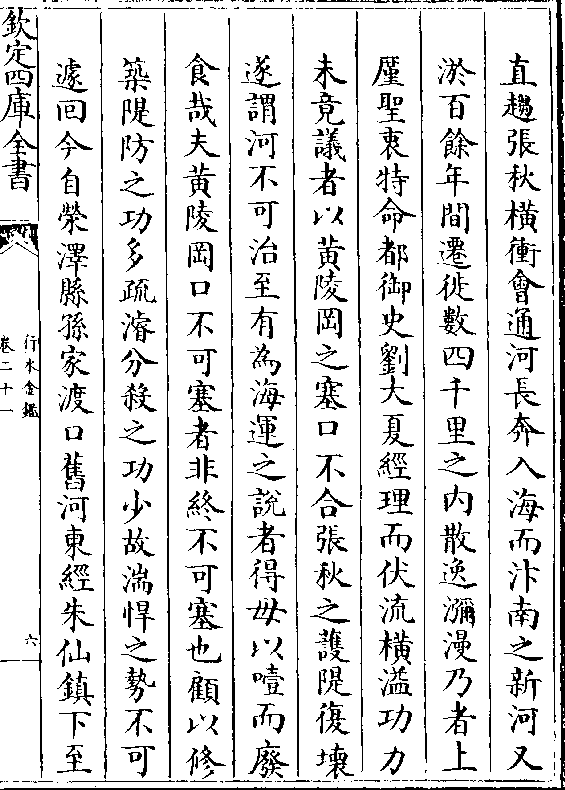 直趨張秋橫衝會通河長奔入海而汴南之新河又
淤百餘年間遷徙數四千里之內散逸瀰漫乃者上
厪聖衷特命都御史劉大夏經理而伏流橫溢功力
未竟議者以黃陵岡之塞口不合張秋之䕶隄復壊
遂謂河不可治至有為海運之說者得毋以噎而廢
食哉夫黃陵岡口不可塞者非終不可塞也顧以修
築隄防之功多疏濬分殺之功少故湍悍之勢不可
遽回今自滎澤縣孫家渡口舊河東經朱仙鎮下至
欽定四庫全書
行水金鑑
卷二十一
六